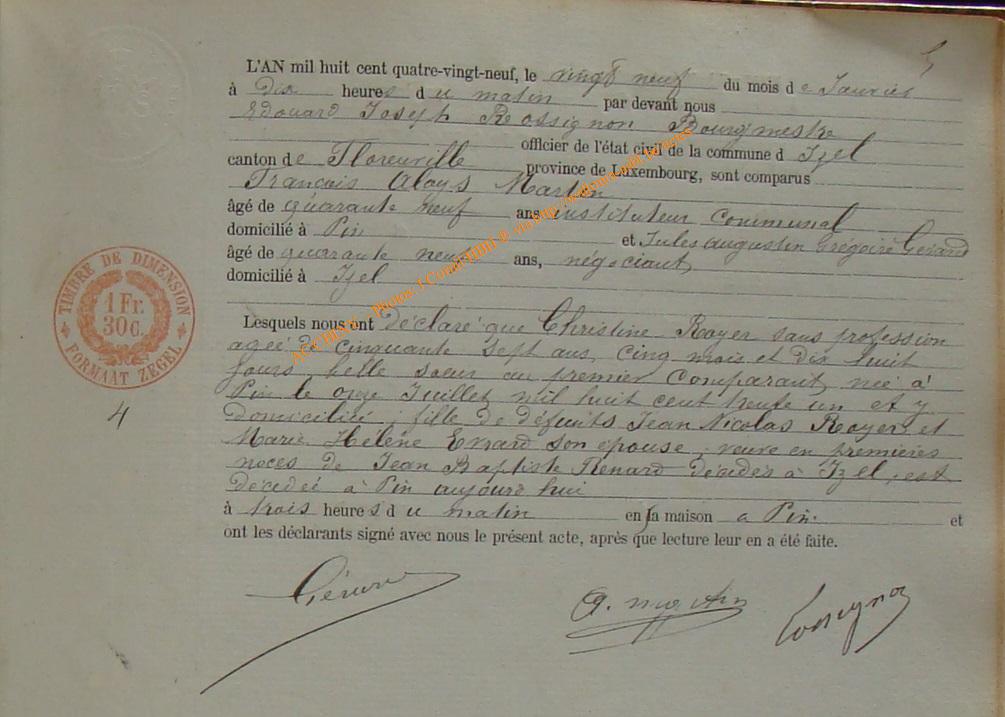 5
L'AN mil huit cent quatre-vingt-neuf, le vingt neuf du mois de Janvier
à dix heures du matin par devant nous
Edouard Joseph Rossignon Bourgmestre
officier de l'état civil de la commune d Izel
canton de Florenville province de Luxembourg, sont comparus
François Aloys Martin
âgé de quarante neuf ans instituteur communal
domicilié à Pin et Jules Augustin Grégoire Gerard
âgé de quarante neuf ans, négociant
domicilié à Izel
Lesquels nous ont déclaré que Christine Royer sans profession
agée de cinquante sept ans, cinq mois et dix huit
jours, belle soeur au premier comparant, née à
Pin le onze Juillet mil huit cent trente un et y
domiciliée, fille de défunts Jean Nicolas Royer et
Marie Hélène Errard son épouse, veuve en premières
noces de Jean Baptiste Renard décédés à Izel, est
décédée à Pin aujourd'hui
à trois heures du matin en sa maison a Pin. et
ont les déclarants signé avec nous le présent acte, après que lecture leur en a été faite.
TIMBRE DE DIMENSION
1 Fr.
30 c.
FORMAAT ZEGEL
4
A. Martin
Rossignon